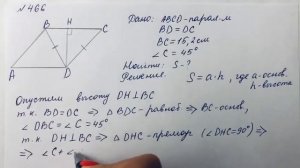 № 466
B H C
A D
Дано: ABCD-парал-м
BD = DC
BC = 15,2см
∠C = 45°
Найти: S-?
Решение
S = a·h, где a-основ.
h-высота
Опустим высоту DH⊥BC
т.к. BD=DC ⇒ △BDC-равноб ⇒ BC-основ,
∠DBC = ∠C = 45°
т.к. DH⊥BC ⇒ △DHC-прямоуг (∠DHC=90°) ⇒
⇒ ∠C + ∠